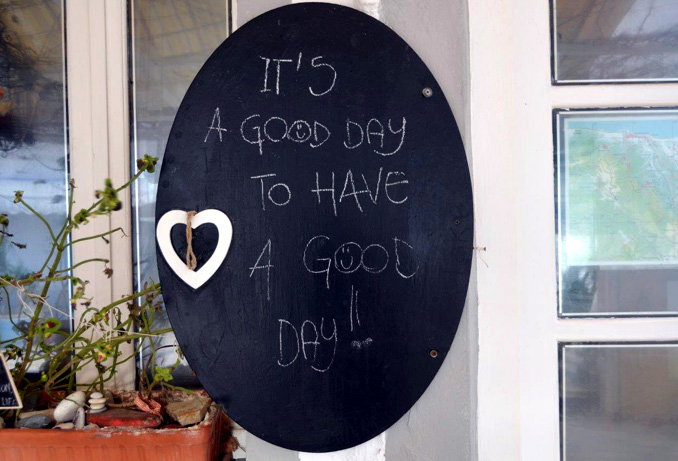 IT'S
A GOOD DAY
TO HAVE
A GOOD
DAY!!